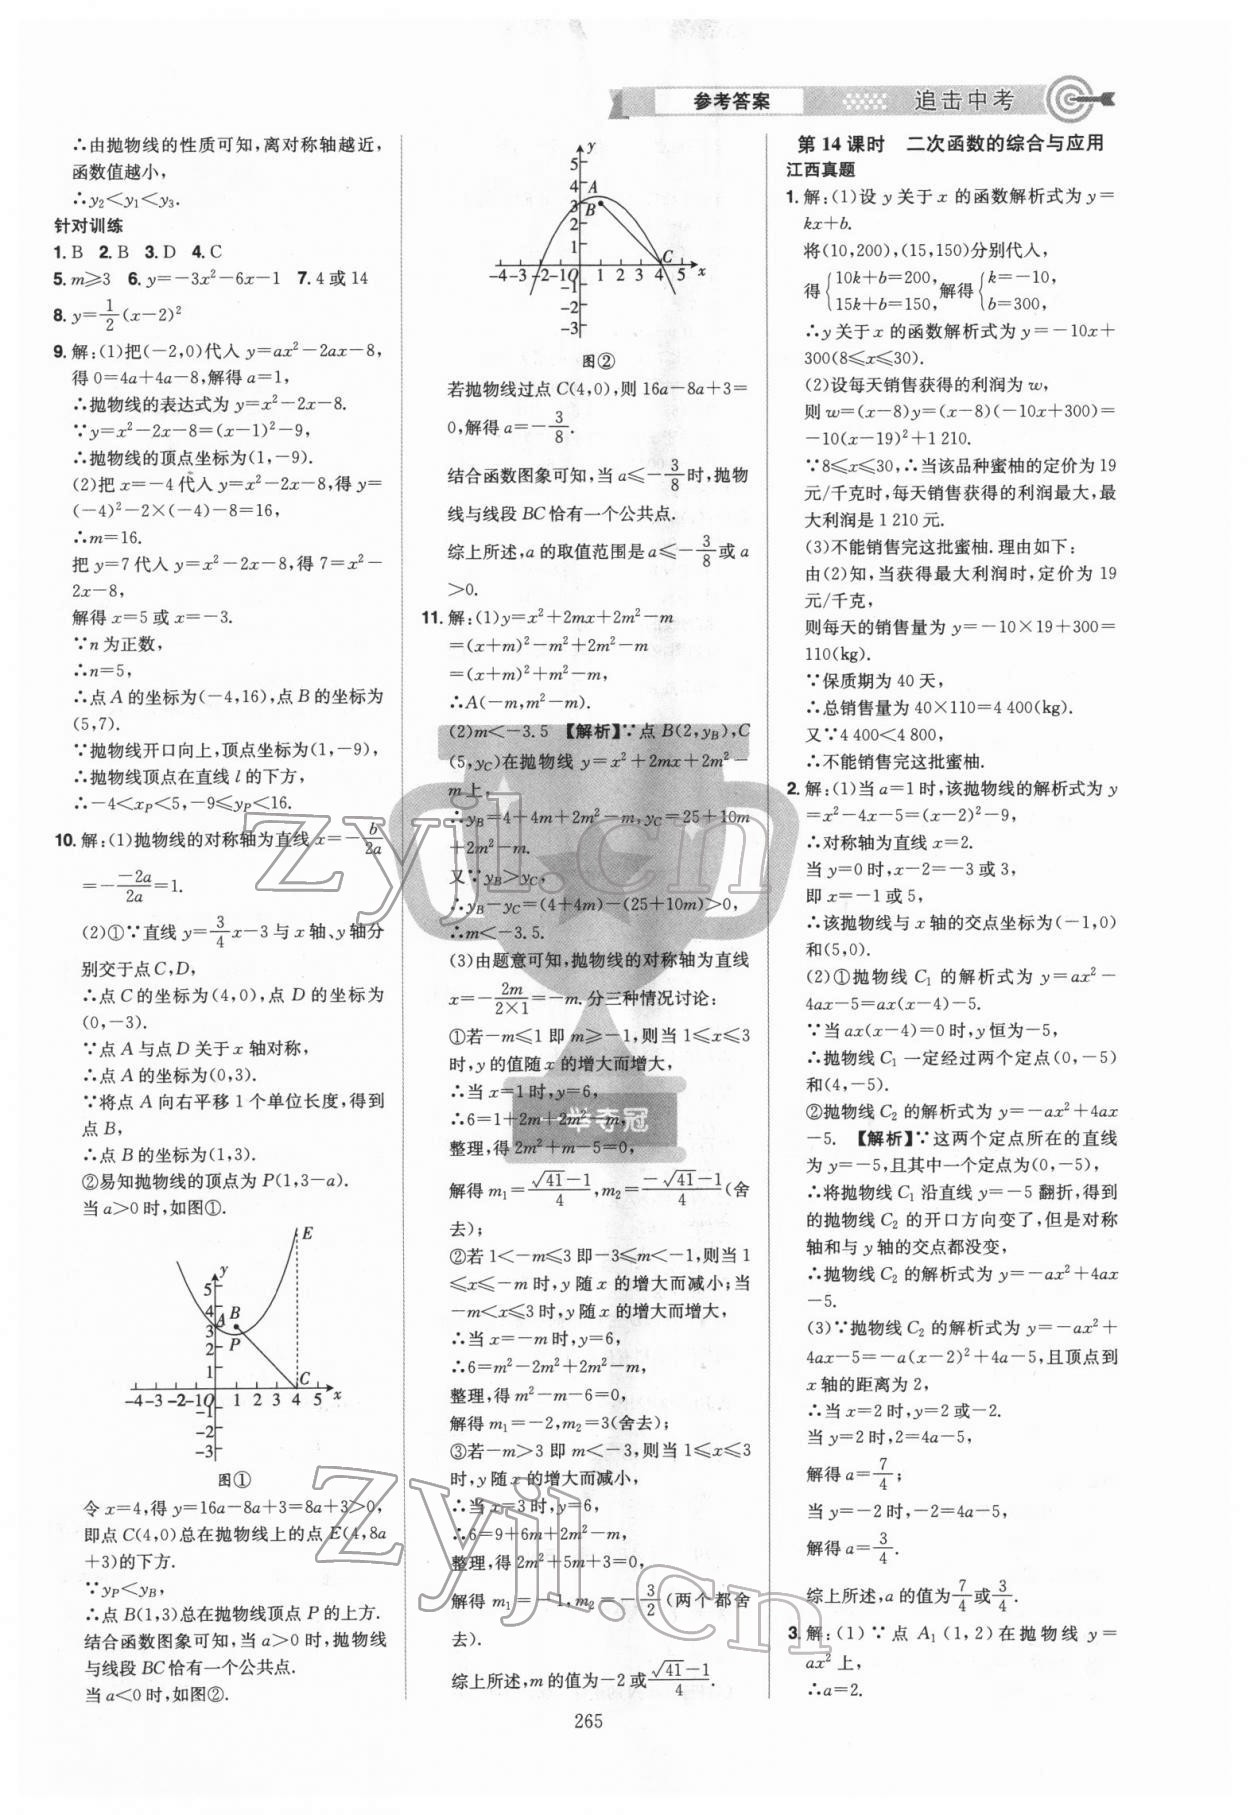 参考答案 追击中考
∴由抛物线的性质可知,离对称轴越近,
函数值越小,
∴y₂<y₁<y₃.
针对训练
1. B 2. B 3. D 4. C
5. m≥3 6. y=-3x²-6x-1 7. 4 或 14
8. y=1/2(x-2)²
9. 解:(1)把(-2,0)代入 y=ax²-2ax-8,
得 0=4a+4a-8,解得 a=1,
∴抛物线的表达式为 y=x²-2x-8.
∵y=x²-2x-8=(x-1)²-9,
∴抛物线的顶点坐标为(1,-9).
(2)把 x=-4 代入 y=x²-2x-8,得 y=
(-4)²-2×(-4)-8=16,
∴m=16.
把 y=7 代入 y=x²-2x-8,得 7=x²-
2x-8,
解得 x=5 或 x=-3.
∵n 为正数,
∴n=5,
∴点 A 的坐标为(-4,16),点 B 的坐标为
(5,7).
∵抛物线开口向上,顶点坐标为(1,-9),
∴抛物线顶点在直线 l 的下方,
∴-4<x_P<5,-9≤y_P<16.
10. 解:(1)抛物线的对称轴为直线 x=-b/2a
=-(-2a)/2a=1.
(2)①∵直线 y=3/4x-3 与 x 轴、y 轴分
别交于点 C,D,
∴点 C 的坐标为(4,0),点 D 的坐标为
(0,-3).
∵点 A 与点 D 关于 x 轴对称,
∴点 A 的坐标为(0,3).
∵将点 A 向右平移 1 个单位长度,得到
点 B,
∴点 B 的坐标为(1,3).
②易知抛物线的顶点为 P(1,3-a).
当 a>0 时,如图①.
E
y
5
4 A B
3
2 P
1
C
-4 -3 -2 -1 O 1 2 3 4 5 x
-1
-2
-3
图①
令 x=4,得 y=16a-8a+3=8a+3>0,
即点 C(4,0)总在抛物线上的点 E(4,8a
+3)的下方.
∵y_P<y_B,
∴点 B(1,3)总在抛物线顶点 P 的上方.
结合函数图象可知,当 a>0 时,抛物线
与线段 BC 恰有一个公共点.
当 a<0 时,如图②.
y
5
4 A
3 B
2
1
C
-4 -3 -2 -1 O 1 2 3 4 5 x
-1
-2
-3
图②
若抛物线过点 C(4,0),则 16a-8a+3=
0,解得 a=-3/8.
结合函数图象可知,当 a≤-3/8时,抛物
线与线段 BC 恰有一个公共点.
综上所述,a 的取值范围是 a≤-3/8或 a
>0.
11. 解:(1)y=x²+2mx+2m²-m
=(x+m)²-m²+2m²-m
=(x+m)²+m²-m,
∴A(-m,m²-m).
(2)m<-3.5 【解析】∵点 B(2,y_B),C
(5,y_C)在抛物线 y=x²+2mx+2m²-
m 上,
∴y_B=4+4m+2m²-m,y_C=25+10m
+2m²-m.
又∵y_B>y_C,
∴y_B-y_C=(4+4m)-(25+10m)>0,
∴m<-3.5.
(3)由题意可知,抛物线的对称轴为直线
x=-2m/(2×1)=-m.分三种情况讨论:
①若-m≤1 即 m≥-1,则当 1≤x≤3
时,y 的值随 x 的增大而增大,
∴当 x=1 时,y=6,
∴6=1+2m+2m²-m,
整理,得 2m²+m-5=0,
解得 m₁=(√41-1)/4,m₂=(-√41-1)/4(舍
去);
②若 1<-m≤3 即-3≤m<-1,则当 1
≤x≤-m 时,y 随 x 的增大而减小;当
-m<x≤3 时,y 随 x 的增大而增大,
∴当 x=-m 时,y=6,
∴6=m²-2m²+2m²-m,
整理,得 m²-m-6=0,
解得 m₁=-2,m₂=3(舍去);
③若-m>3 即 m<-3,则当 1≤x≤3
时,y 随 x 的增大而减小,
∴当 x=3 时,y=6,
∴6=9+6m+2m²-m,
整理,得 2m²+5m+3=0,
解得 m₁=-1,m₂=-3/2(两个都舍
去).
综上所述,m 的值为-2 或(√41-1)/4.
第 14 课时 二次函数的综合与应用
江西真题
1. 解:(1)设 y 关于 x 的函数解析式为 y=
kx+b.
将(10,200),(15,150)分别代入,
得{10k+b=200, 15k+b=150,解得{k=-10, b=300,
∴y 关于 x 的函数解析式为 y=-10x+
300(8≤x≤30).
(2)设每天销售获得的利润为 w,
则 w=(x-8)y=(x-8)(-10x+300)=
-10(x-19)²+1 210.
∵8≤x≤30,∴当该品种蜜柚的定价为 19
元/千克时,每天销售获得的利润最大,最
大利润是 1 210 元.
(3)不能销售完这批蜜柚.理由如下:
由(2)知,当获得最大利润时,定价为 19
元/千克,
则每天的销售量为 y=-10×19+300=
110(kg).
∵保质期为 40 天,
∴总销售量为 40×110=4 400(kg).
又∵4 400<4 800,
∴不能销售完这批蜜柚.
2. 解:(1)当 a=1 时,该抛物线的解析式为 y
=x²-4x-5=(x-2)²-9,
∴对称轴为直线 x=2.
当 y=0 时,x-2=-3 或 3,
即 x=-1 或 5,
∴该抛物线与 x 轴的交点坐标为(-1,0)
和(5,0).
(2)①抛物线 C₁ 的解析式为 y=ax²-
4ax-5=ax(x-4)-5.
∵当 ax(x-4)=0 时,y 恒为-5,
∴抛物线 C₁ 一定经过两个定点(0,-5)
和(4,-5).
②抛物线 C₂ 的解析式为 y=-ax²+4ax
-5. 【解析】∵这两个定点所在的直线
为 y=-5,且其中一个定点为(0,-5),
∴将抛物线 C₁ 沿直线 y=-5 翻折,得到
的抛物线 C₂ 的开口方向变了,但是对称
轴和与 y 轴的交点都没变,
∴抛物线 C₂ 的解析式为 y=-ax²+4ax
-5.
(3)∵抛物线 C₂ 的解析式为 y=-ax²+
4ax-5=-a(x-2)²+4a-5,且顶点到
x 轴的距离为 2,
∴当 x=2 时,y=2 或-2.
当 y=2 时,2=4a-5,
解得 a=7/4;
当 y=-2 时,-2=4a-5,
解得 a=3/4.
综上所述,a 的值为7/4或3/4.
3. 解:(1)∵点 A₁(1,2)在抛物线 y=
ax² 上,
∴a=2.
一举夺冠
zyjl.cn
zyjl.cn
265